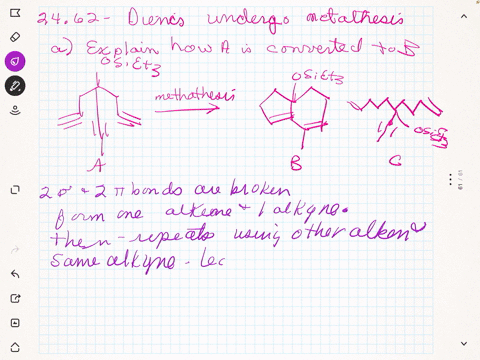 24.62- Dienes undergo metathesis
a) Explain how A is converted to B
OSiEt3
OSiEt3
methathesis
OSiEt3
A
B
C
2 σ + 2 π bonds are broken
form one alkene + 1 alkyne.
then - repeats using other alken
same alkyne - Lec
61 / 61